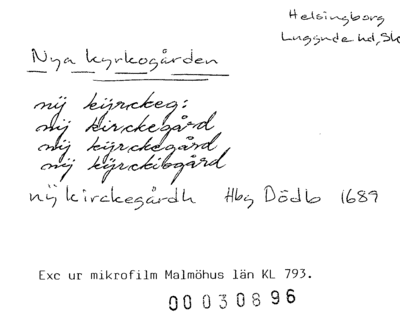 Helsingborg
Luggude hd, Sk
Nya kyrkogården
nÿ kÿrckeg:
nÿ kirckegård
nÿ kÿrckegård
nÿ kÿrckibgård
nÿ kirckegårdh Hbg Dödb 1689
Exc ur mikrofilm Malmöhus län KL 793.
00030896